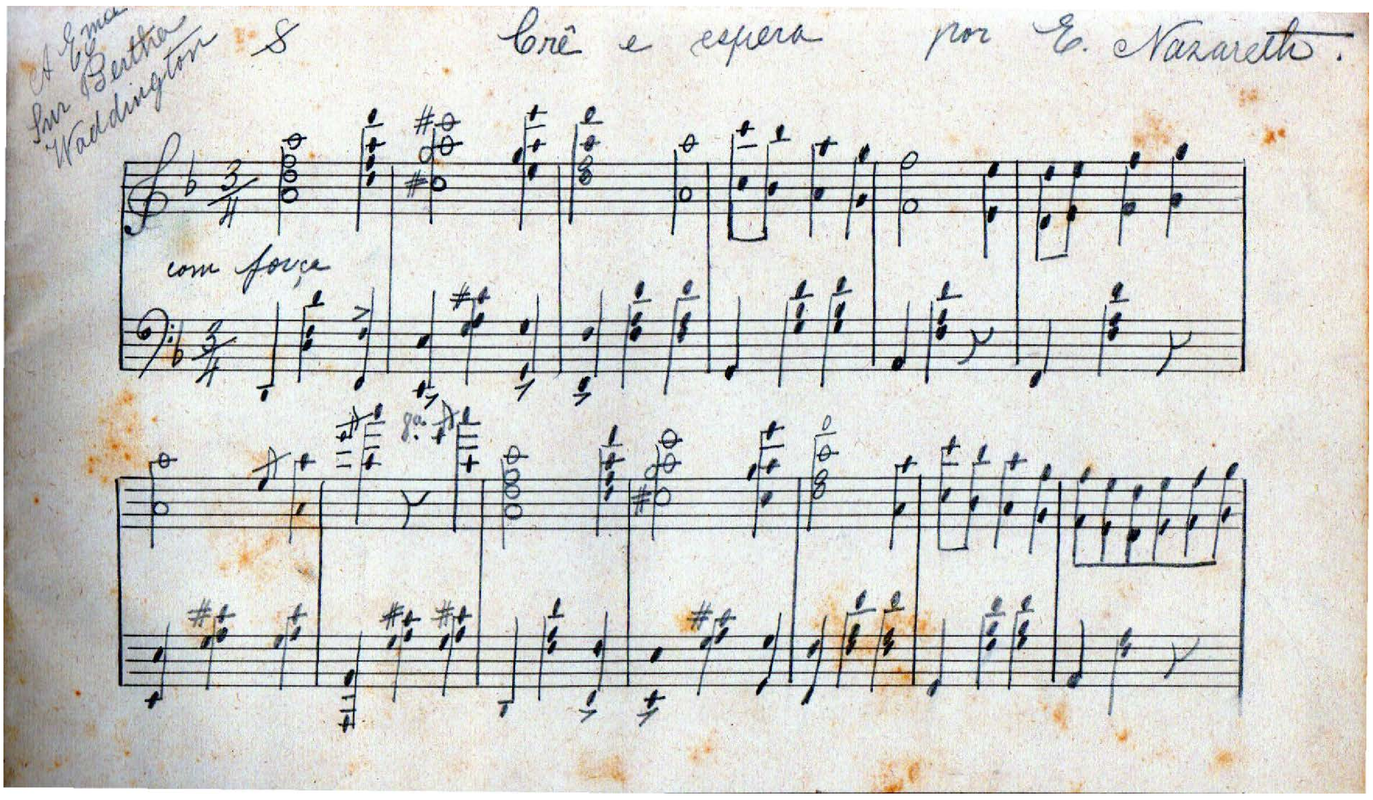 A Ema
Snr Bertha
Waddington
8
Crê e espera por E. Nazareth.
3
4
com força
3
4
8ª